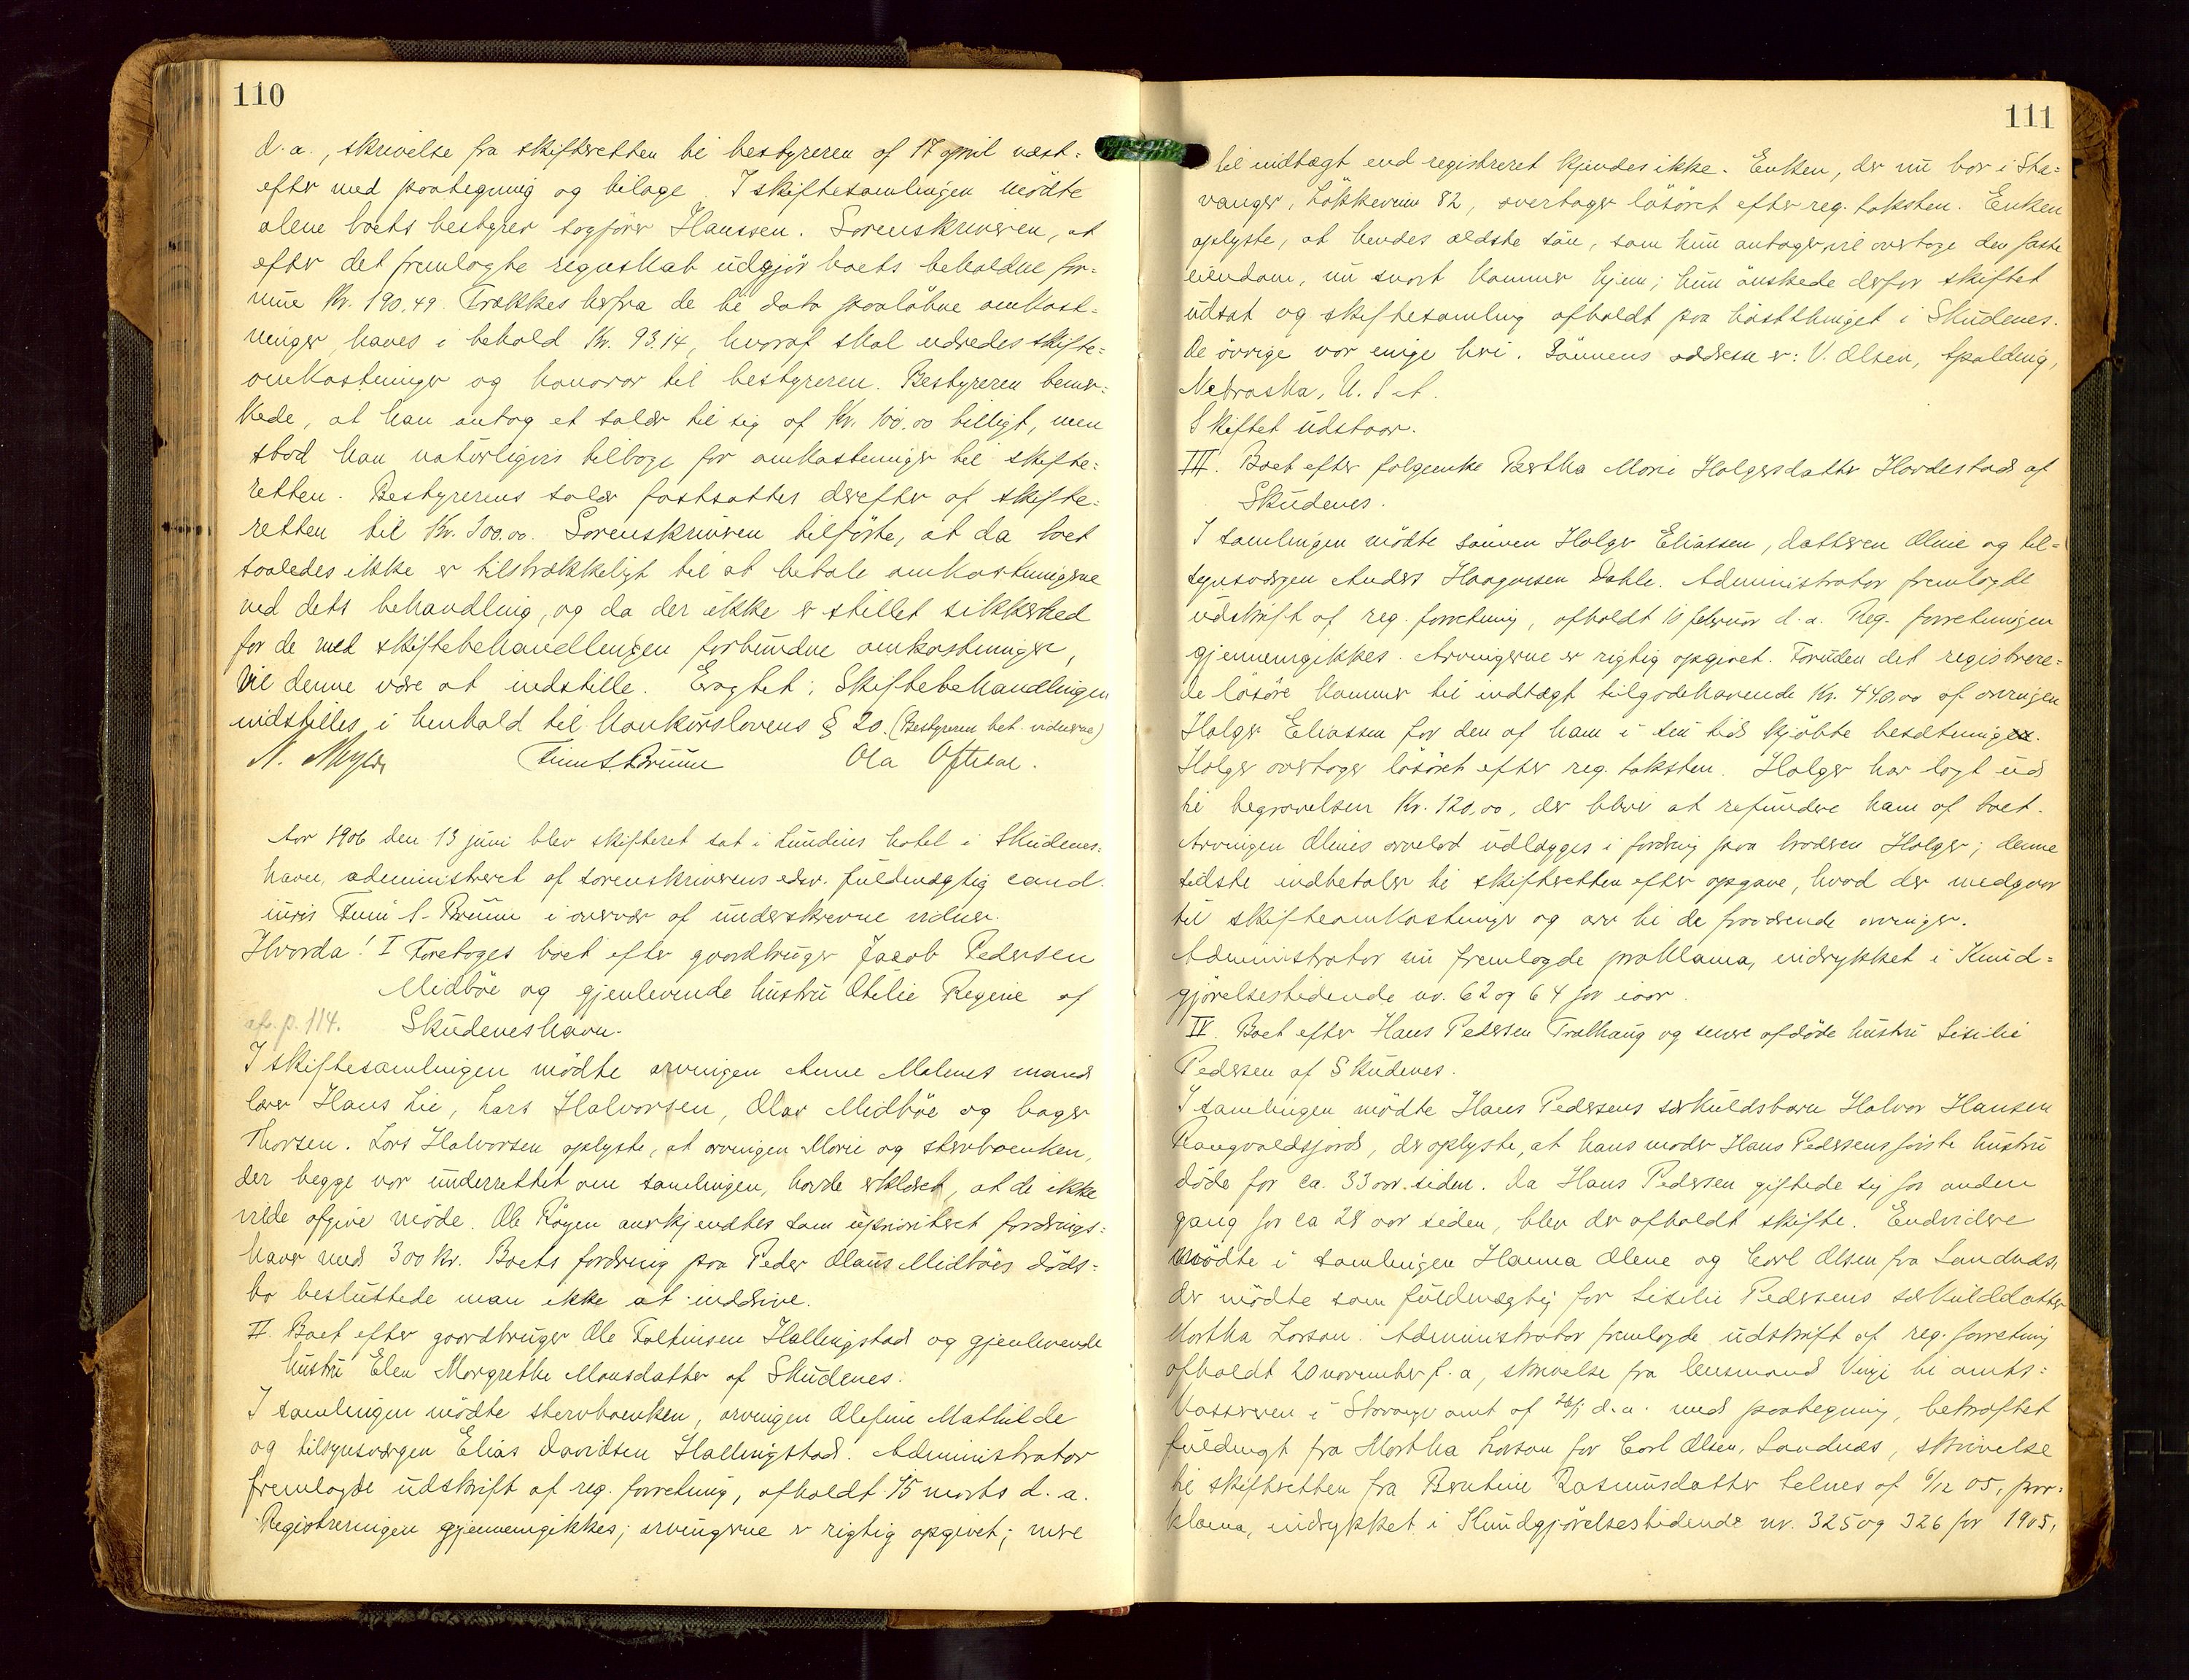 110
d. a., skrivelse fra skifteretten til bestyreren af 17 april næst-
efter med paategning og bilage. I skiftesamlingen mödte
alene boets bestyrer sagförer Hanssen. Sorenskriveren, at
efter det fremlagte regnskab udgjör boets beholdne for-
mue Kr. 190.49. Trækkes herfra de til dato paalöbne omkost-
ninger haves i behold Kr. 93.14, hvoraf skal udredes skifte-
omkostninger og honorar til bestyreren. Bestyreren bemær-
kede, at han antog et salær til sig af Kr. 100.00 billigt, men
stod han naturligvis tilbage for omkostninger til skifte-
retten. Bestyrerens salær fastsattes derefter af skifte-
retten til Kr. 100.00. Sorenskriveren tilförte, at da boet
saaledes ikke er tilstrækkeligt til at betale omkostningerne
ved dets behandling, og da der ikke er stillet sikkerhed
for de med skiftebehandlingen forbundne omkostninger,
vil denne være at indstille. Eragtet: Skiftebehandlingen
indstilles i henhold til konkurslovens § 20. (Bestyreren bet. vidnerne)
N. Meyer Finn S. Bruun Ola Oftedal.
Aar 1906 den 13 juni blev skifteret sat i Lundeius hotel i Skudenes-
havn, administreret af sorenskriverens edsv. fuldmægtig cand.
iuris Finn S. Bruun i overvær af underskrevne vidner.
Hvorda! I Foretoges boet efter gaardbruger Jacob Pedersen
Midböe og gjenlevende hustru Otelie Regine af
afs. p. 114. Skudeneshavn.
I skiftesamlingen mödte arvingen Anne Malenes mand
lærer Hans Lie, Lars Halvorsen, Olav Midböe og bager
Thorsen. Lars Halvorsen oplyste, at arvingen Marie og stervboenken,
der begge var underrettet om samlingen, havde erklæret, at de ikke
vilde afgive möde. Ole Röyen anerkjendtes som uprioriteret fordrings-
haver med 300 kr. Boets fordring paa Peder Olaus Midböes döds-
bo besluttede man ikke at inddrive.
II. Boet efter gaardbruger Ole Faltinsen Hallingstad og gjenlevende
hustru Elen Margrethe Monsdatter af Skudenes.
I samlingen mödte stervboenken, arvingen Olefine Mathilde
og tilsynsværgen Elias Davidsen Hallingstad. Administrator
fremlagde udskrift af reg. forretning, afholdt 15 marts d. a.
Registreringen gjennemgikkes; arvingerne er rigtig opgivet; mere
111
til indtægt end registreret kjendes ikke. Enken, der nu bor i Sta-
vanger, Lökkeveien 82, overtager lösöret efter reg. taksten. Enken
oplyste, at hendes ældste sön, som hun antager vil overtage den faste
eiendom, nu snart kommer hjem; hun önskede derfor skiftet
udsat og skiftesamling afholdt paa höstthinget i Skudenes.
De övrige var enige heri. Sönnens addresse er: V. Olsen, Spalding,
Nebraska, U. S. A.
Skiftet udstaar.
III. Boet efter folgeenke Bertha Marie Holgersdatter Hardestad af
Skudenes.
I samlingen mödte sönnen Holger Eliassen, datteren Oline og til-
synsværgen Anders Haagensen Dahle. Administrator fremlagde
udskrift af reg. forretning, afholdt 10 februar d. a. Reg. forretningen
gjennemgikkes. Arvingerne er rigtig opgivet. Foruden det registrere-
de lösöre kommer til indtægt tilgodehavende Kr. 440.00 af arvingen
Holger Eliassen for den af ham i sin tid kjöbte besætning.
Holger overtager lösöret efter reg. taksten. Holger har lagt ud
til begravelsen Kr. 120.00, der blir at refundere ham af boet.
Arvingen Olines arvelod udlægges i fordring paa broderen Holger; denne
sidste indbetaler til skifteretten efter opgave, hvad der medgaar
til skifteomkostninger og arv til de fraværende arvinger.
Administrator nu fremlagde proklama, indrykket i Kund-
gjörelsestidende nr. 62 og 64 for iaar.
IV. Boet efter Hans Pedersen Tralhaug og senere afdöde hustru Sisilie
Pedersen af Skudenes.
I samlingen mödte Hans Pedersens særkuldsbarn Halvor Hansen
Rangvaldsjord, der oplyste, at hans moder Hans Pedersens förste hustru
döde for ca. 33 aar siden. Da Hans Pedersen giftede sig for anden
gang for ca 28 aar siden, blev der afholdt skifte. Endvidere
mödte i samlingen Hanna Olene og Carl Olsen fra Sandnæs,
der mödte som fuldmægtig for Sisilie Pedersens særkulddatter
Martha Larson. Administrator fremlagde udskrift af reg. forretning
afholdt 20 november f. a, skrivelse fra lensmand Vinje til amts-
kassereren i Stavanger amt af 26/1 d. a. med paategning, bekræftet
fuldmagt fra Martha Larson for Carl Olsen, Sandnæs, skrivelse
til skifteretten fra Berntine Rasmusdatter Selnes af 6/12 05, pro-
klama, indrykket i Kundgjörelsestidende nr. 325 og 326 for 1905,